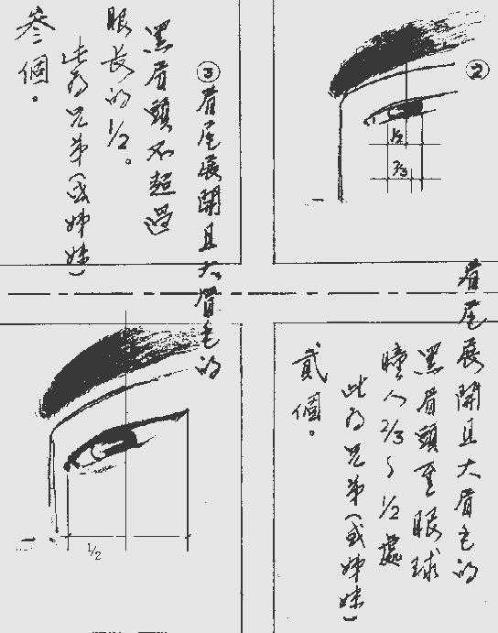 ②
1/2
2/3
眉尾展開且大眉毛的
黑眉頭至眼球
瞳人2/3~1/2處
此為兄弟(或姊妹)
貳個。
③眉尾展開且大眉毛的
黑眉頭不超過
眼長的1/2。
此為兄弟(或姊妹)
叁個。
1/2